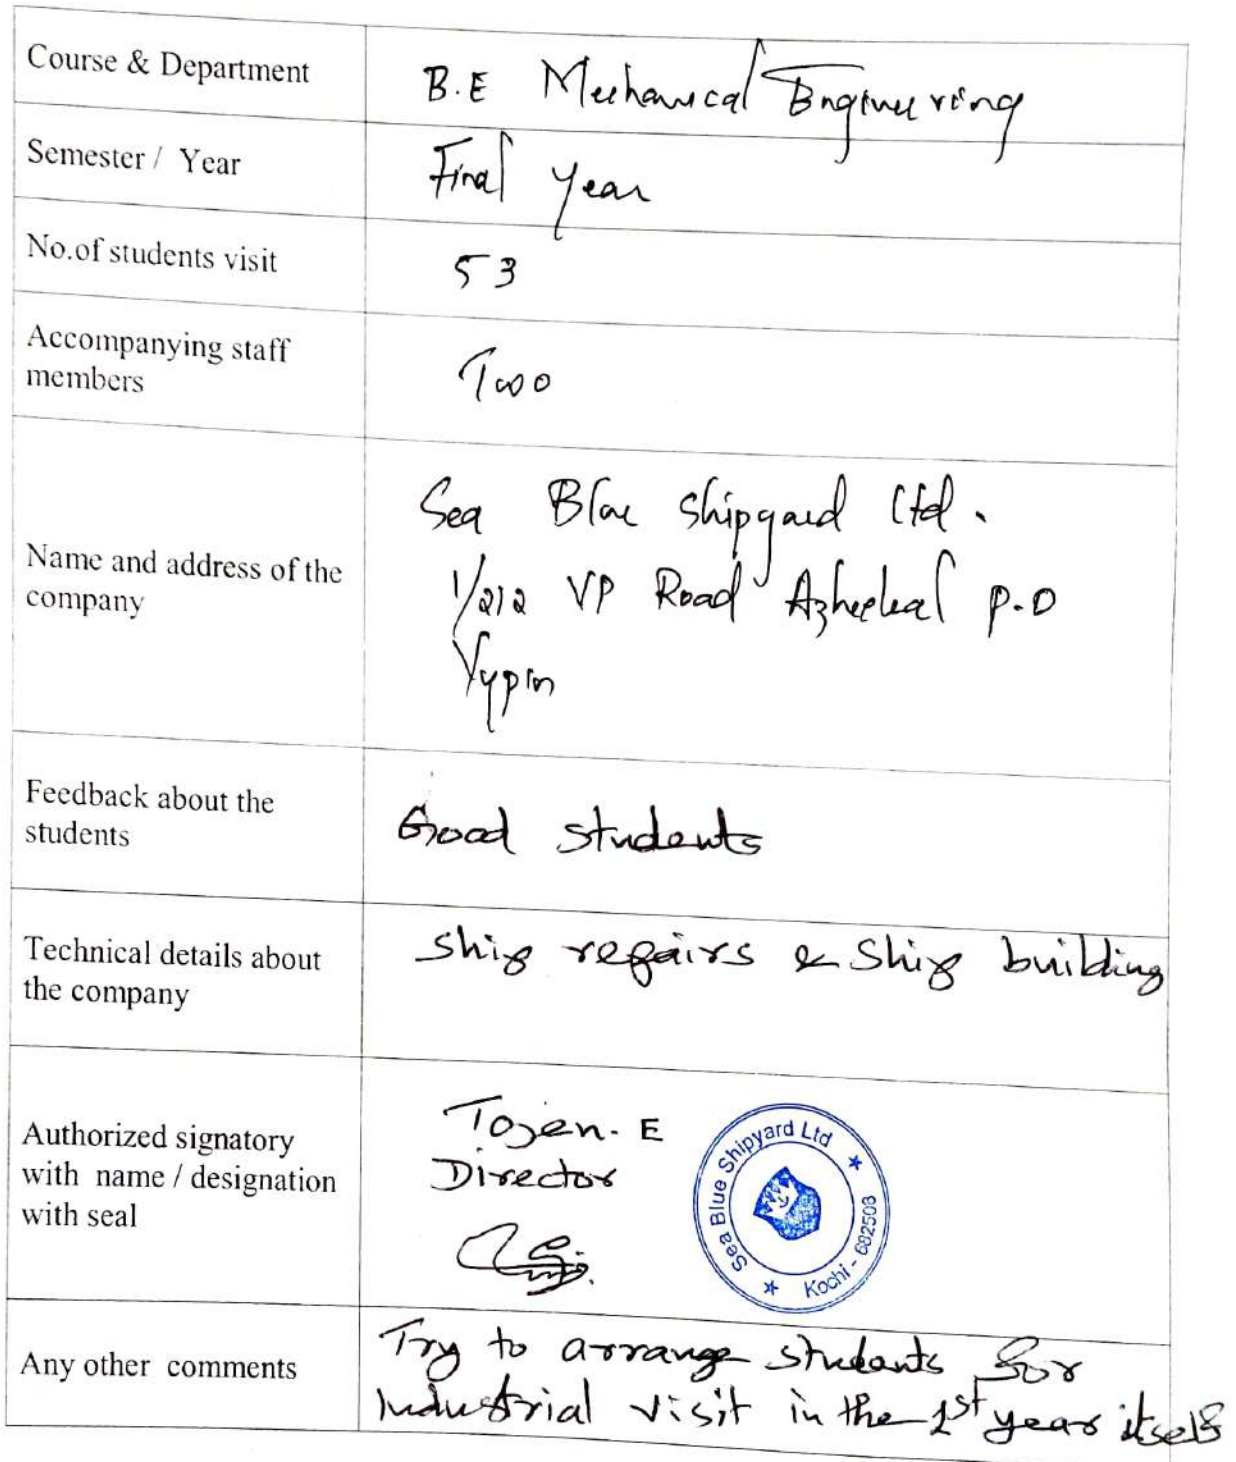 Course & Department
B.E Mechanical Engineering
Semester / Year
Final Year
No.of students visit
53
Accompanying staff
members
Two
Name and address of the
company
Sea Blue Shipyard Ltd.
1/212 VP Road Azheekal P.O
Vypin
Feedback about the
students
Good students
Technical details about
the company
Ship repairs & Ship building
Authorized signatory
with name / designation
with seal
Tojen. E
Director
Sea Blue Shipyard Ltd
Kochi - 682508
Any other comments
Try to arrange students for
Industrial visit in the 1st year itself